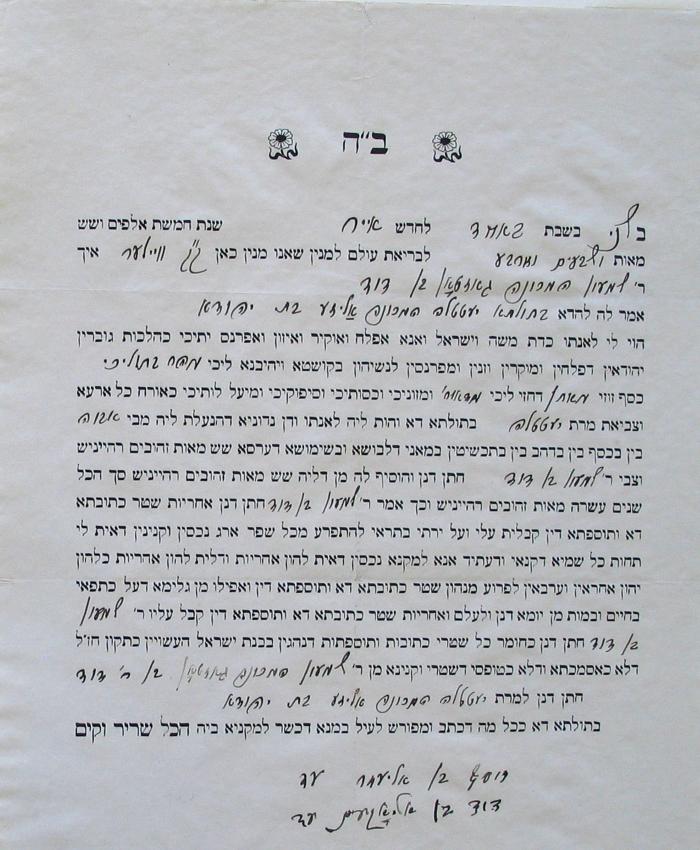 ב״ה
בשני בשבת באחד לחדש אייר שנת חמשת אלפים ושש
מאות ושבעים וארבע לבריאת עולם למנין שאנו מנין כאן ק״ק ווײלער איך
ר׳ שמעון המכונה בן דוד
אמר לה להדא בתולתא יעטטלה המכונה בת יהודא
הוי לי לאנתו כדת משה וישראל ואנא אפלח ואוקיר ואיזון ואפרנס יתיכי כהלכות גוברין
יהודאין דפלחין ומוקרין וזנין ומפרנסין לנשיהון בקושטא ויהיבנא ליכי מהר בתוליכי
כסף זוזי מאתן דחזי ליכי מדאורי׳ ומזוניכי וכסותיכי וסיפוקיכי ומיעל לותיכי כאורח כל ארעא
וצביאת מרת יעטטלה בתולתא דא והות ליה לאנתו ודן נדוניא דהנעלת ליה מבי אבוה
בין בכסף בין בדהב בין בתכשיטין במאני דלבושא ובשימושא דערסא שש מאות זהובים רהייניש
וצבי ר׳ שמעון בן דוד חתן דנן והוסיף לה מן דליה שש מאות זהובים רהייניש סך הכל
שנים עשרה מאות זהובים רהייניש וכך אמר ר׳ שמעון בן דוד חתן דנן אחריות שטר כתובתא
דא ותוספתא דין קבלית עלי ועל ירתי בתראי להתפרע מכל שפר ארג נכסין וקנינין דאית לי
תחות כל שמיא דקנאי ודעתיד אנא למקנא נכסין דאית להון אחריות ודלית להון אחריות כלהון
יהון אחראין וערבאין לפרוע מנהון שטר כתובתא דא ותוספתא דין ואפילו מן גלימא דעל כתפאי
בחיים ובמות מן יומא דנן ולעלם ואחריות שטר כתובתא דא ותוספתא דין קבל עליו ר׳ שמעון
בן דוד חתן דנן כחומר כל שטרי כתובות ותוספתות דנהגין בבנת ישראל העשויין כתקון חז״ל
דלא כאסמכתא ודלא כטופסי דשטרי וקנינא מן ר׳ שמעון המכונה בן ר׳ דוד
חתן דנן למרת יעטטלה המכונה בת יהודא
בתולתא דא ככל מה דכתב ומפורש לעיל במנא דכשר למקניא ביה הכל שריר וקים
יוסף בן אליעזר עד
דוד בן עד